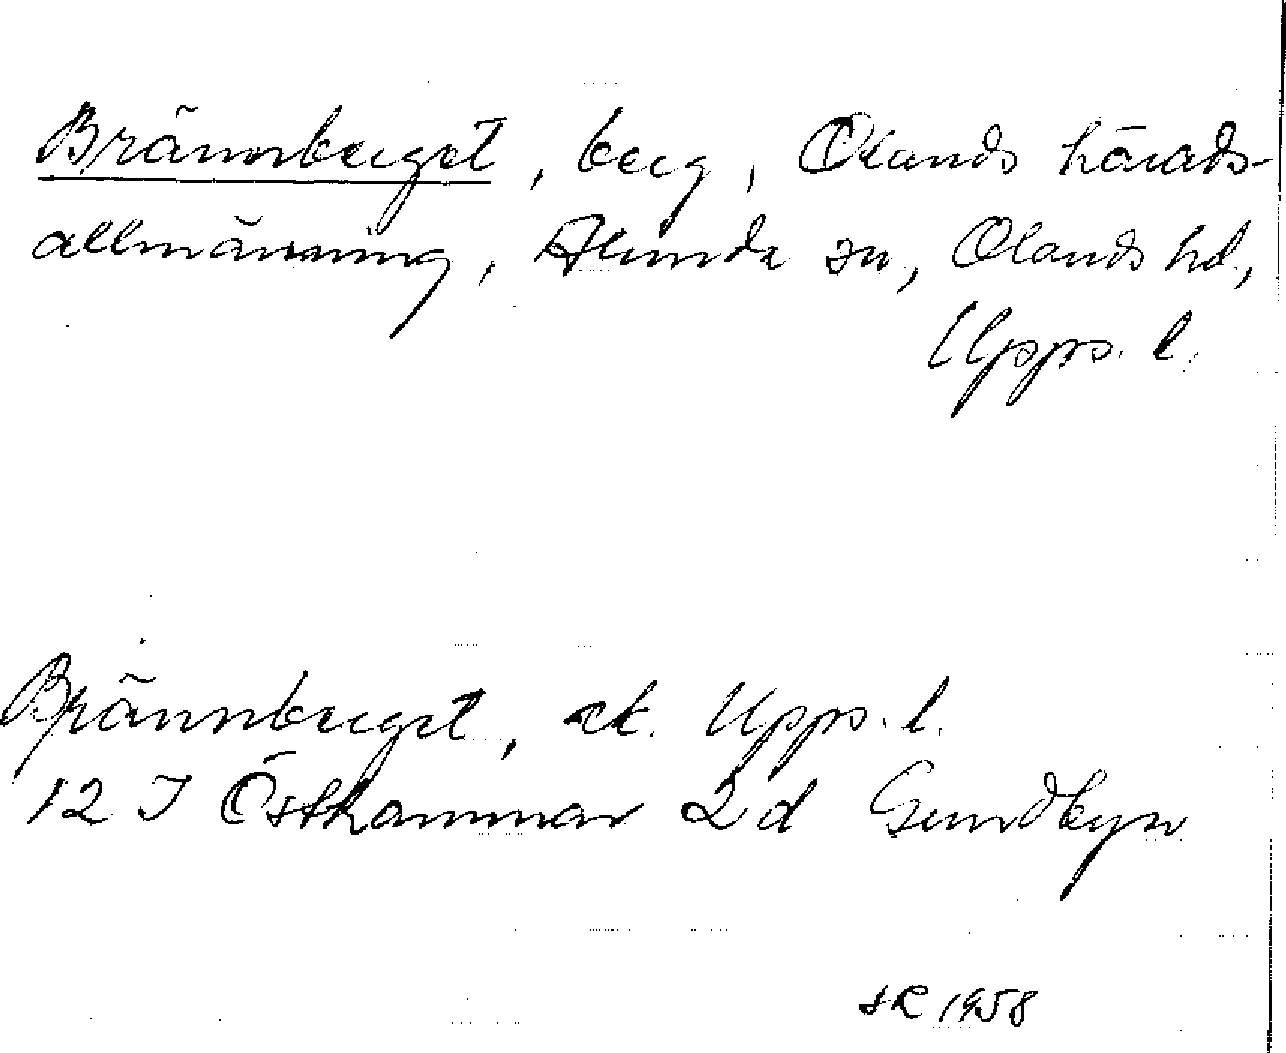 Brännberget, berg, Olands härads-
allmänning, Alunda sn, Olands hd,
Upps. l.
Brännberget, ek. Upps. l.
12 I Östhammar 2d Gundbyn
SR 1958